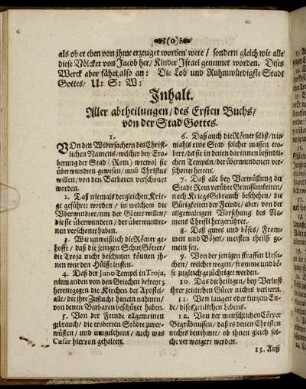 (o)
als ob er eben von jhme erzeuget worden were / sondern gleich wie alle
diese Völcker von Jacob her / Kinder Israel genennet worden. Dises
Werck aber fähet also an: Die Lob und Ruhmwürdigste Stadt
Gottes / U: S: W:
Inhalt.
Aller abtheilungen / des Ersten Buchs /
von der Stad Gottes.
1.
VOn den Widersachern des Christ-
lichen Namens / welcher bey Ero-
berung der Stad (Rom) wie wol sie
überwunden gewesen / umb Christus
willen / von den Barbaren verschonet
worden.
2. Daß niemals dergleichen Krie-
ge geführet worden / in welchen die
Uberwindere, um der Götter willen /
diese überwunden / der überwunde-
nen verschonet haben.
3. Wie unweißlich die Römer ge-
hofft / daß die jenigen Schutz Götter /
die Troja nicht beschützen können jh-
nen wurden Hülffe leisten.
4. Daß der Juno Tempel in Troja,
niemanden von den Griechen befreyet /
hergegen die Kirchen der Apostel
alle / die jhre Zuflucht hinein nahmen /
von denen Barbaren beschützet haben.
5. Von der Feinde allgemeinen
gebrauch / die eroberten Städte zuver-
wüsten / und umzukehren / auch was
Cæsar hiervon gehalten.
6. Daß auch die Römer selbst / nie-
mahls eine Stad solcher massen ero-
bert / daß sie in deren darinnen befindli-
chen Tempeln / der überwundenen ver-
schonet hätten.
7. Daß alle bey Verwüstung der
Stadt Rom verübte Grausamkeiten /
nach Kriegs Gebrauch beschehen / die
Gnade aber / von wegen der
Vermögung des Namens
Christi hergerühret.
8. Daß gutes und böses / From-
men und Bösen / meisten theils gemein
sey.
9. Von der jenigen straffen Ursache /
welcher wegen / fromme und böse
zu gleich gezüchtiget werden.
10. Das die heiligen / bey Verlust
jhrer zeitlichen Güter nichts verlieren.
11. Von langer oder kurtzen En-
de / dises zeitlichen Lebens.
12. Von der menschlichen Cörper
Begräbnussen / daß es denen Christen
nichts benehme / ob jhnen schon solche
nicht gestattet werden.
13. Auß